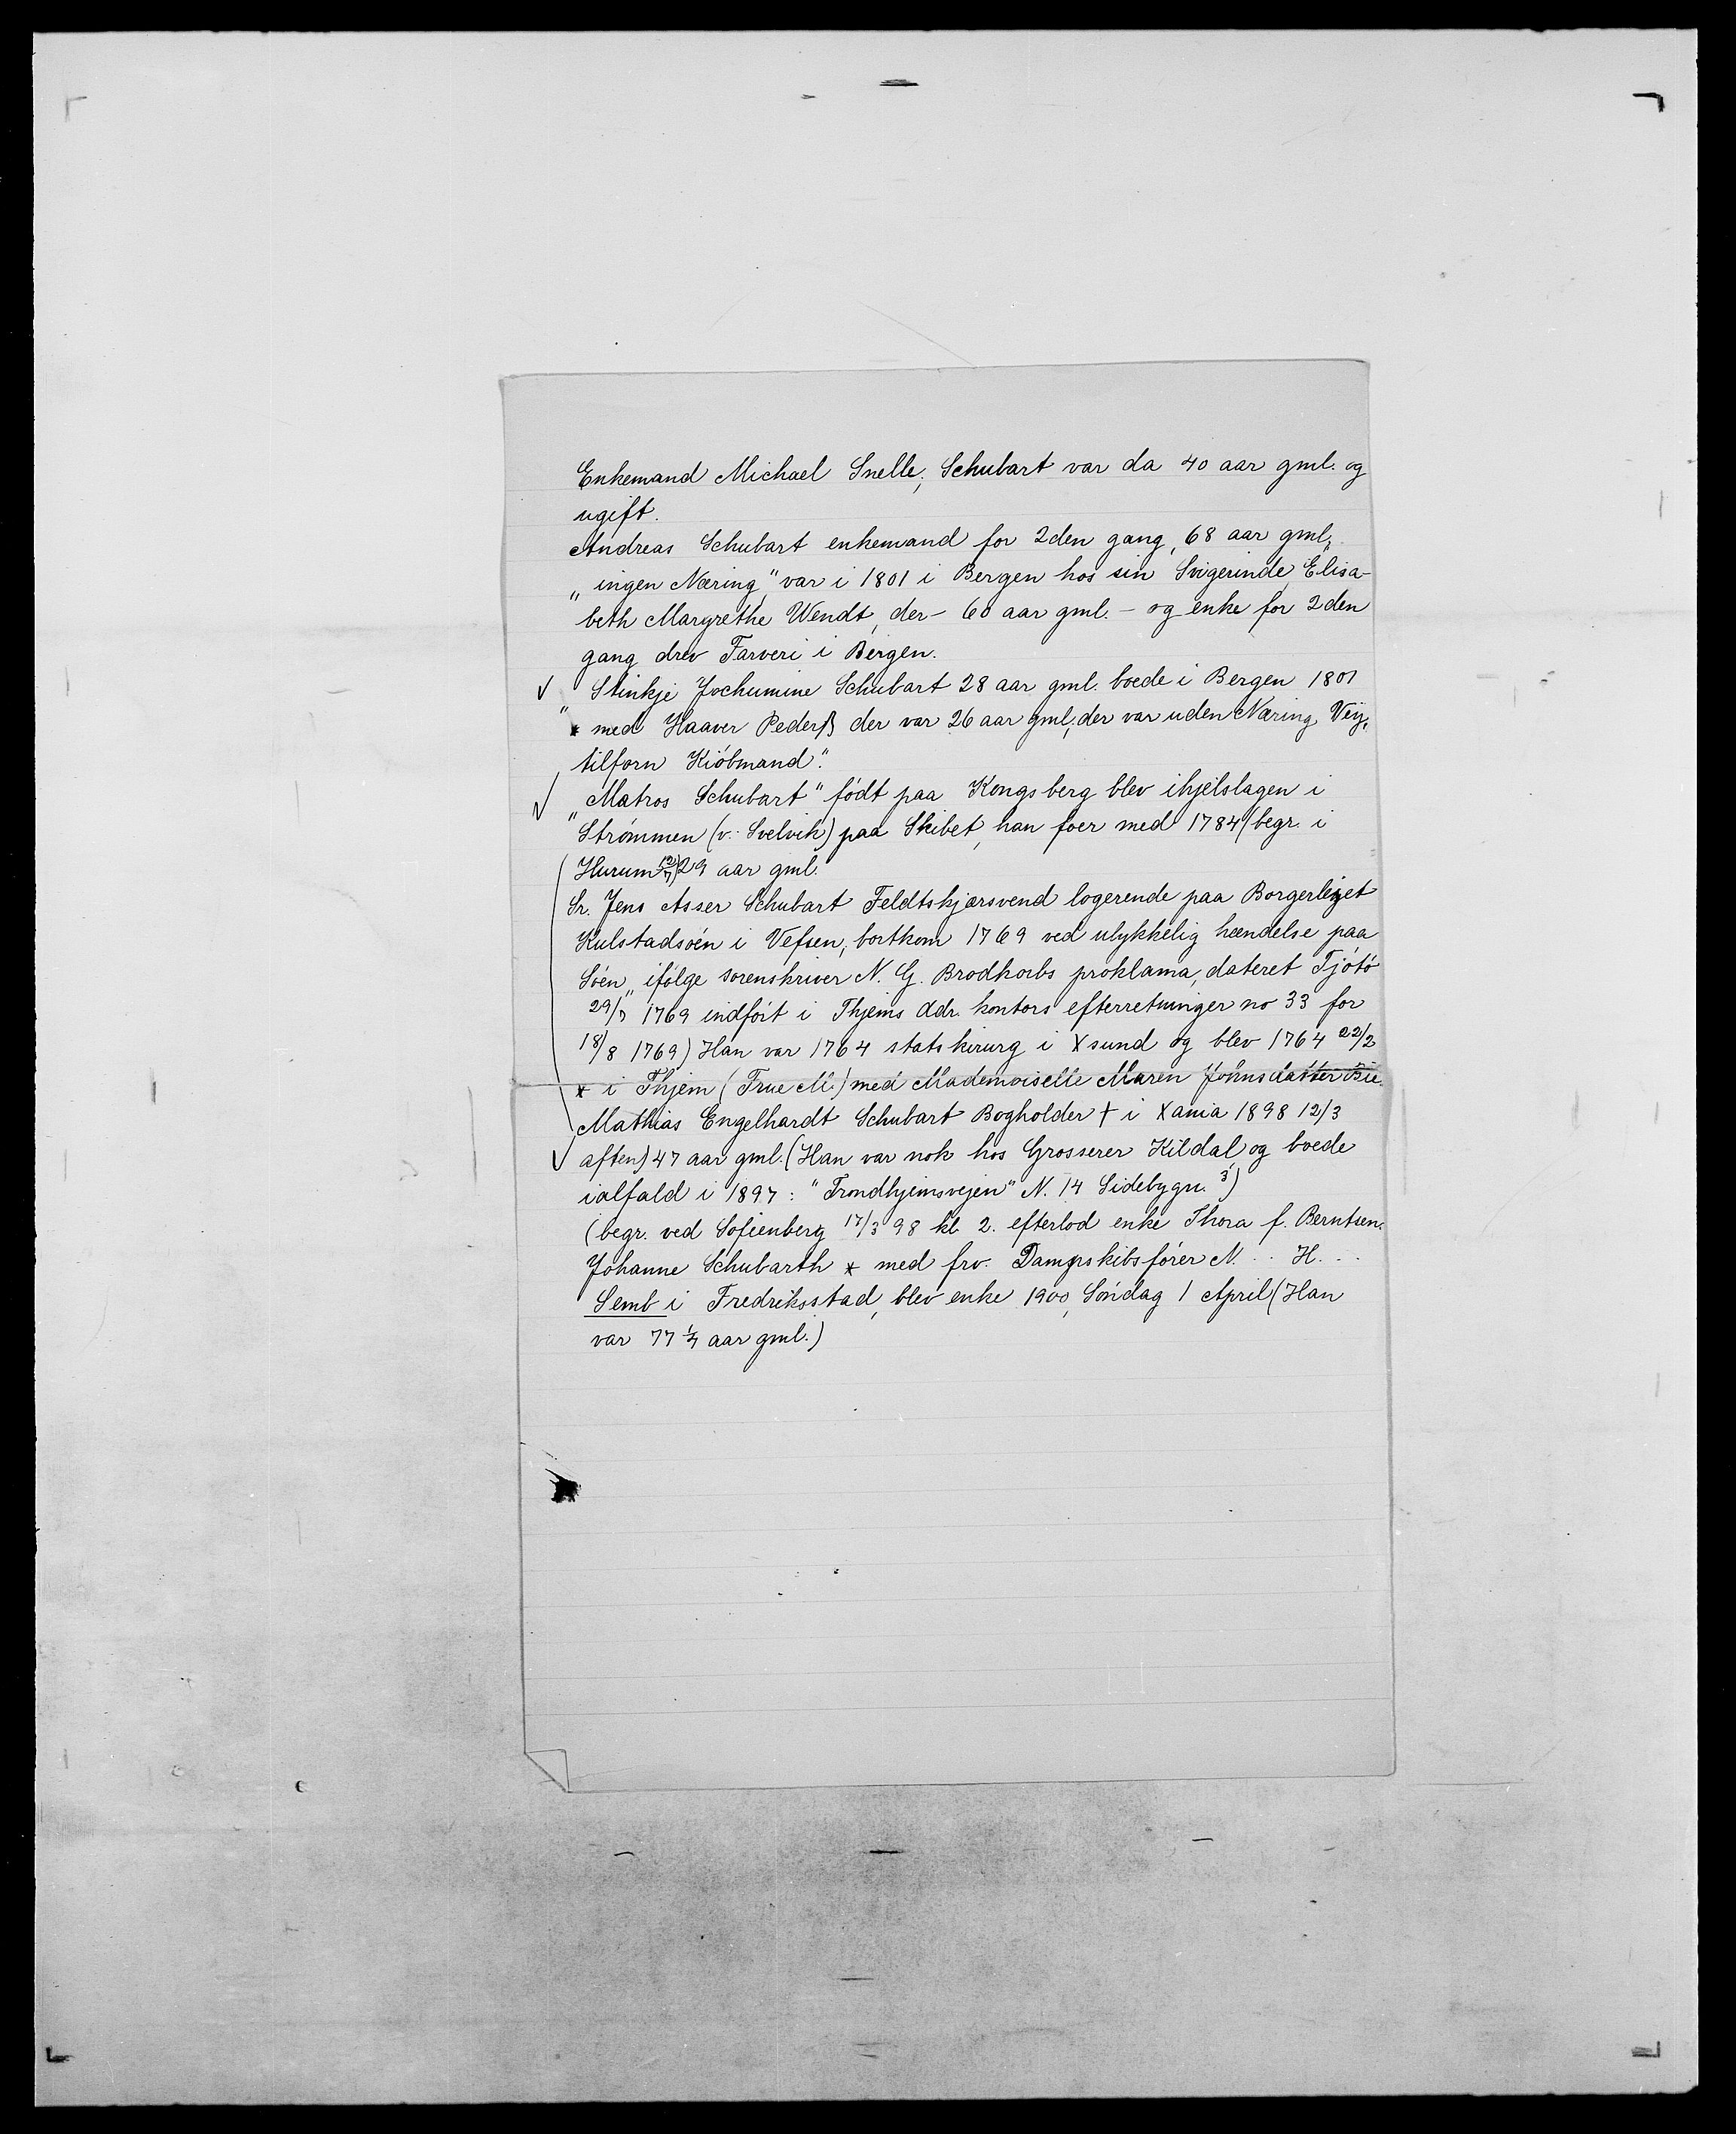 Enkemand Michael Snelle; Schubart var da 40 aar gml. og
ugift.
Andreas Schubart enkemand for 2den gang, 68 aar gml,
„ingen Næring" var i 1801 i Bergen hos sin Svigerinde Elisa-
beth Margrethe Wendt, der - 60 aar gml. - og enke for 2den
gang drev Farveri i Bergen.
✓ Stinkje Jochumine Schubart 28 aar gml. boede i Bergen 1801
* med Haaver Pederß der var 26 aar gml; der var uden Næring
tilforn Kiöbmand".
✓ „Matros Schubart" födt paa Kongsberg blev ihjelslagen i
Strömmen (v. Svelvik) paa Skibet, han foer med 1784 (begr. i
Hurum 12/7) 29 aar gml.
Sr. Jens Asser Schubart Feldtskjærsvend logerende paa Borgerleyet
Kulstadsöen i Vefsen, bortkom 1769 ved ulykkelig hændelse paa
Söen„ ifölge sorenskriver N. G. Brodkorbs proklama, dateret Tjötö
29/7 1769 indfört i Thjems Adr. kontors efterretninger no 33 for
18/8 1769) Han var 1764 statskirurg i Xsund og blev 1764 22/2
* i Thjem (Frue M.) med Mademoiselle Maren Johnsdatter Bie.
Mathias Engelhardt Schubart Bogholder † i Xania 1898 12/3
✓ aften) 47 aar gml. (Han var nok hos Grosserer Kildal og boede
ialfald i 1897: "Trondhjemsvejen" N. 14 Sidebygn. 3)
(begr. ved Sofienberg 17/3 98 kl. 2. efterlod enke Thora f. Berntsen.
Johanne Schubarth * med frv. Dampskibsförer N... H...
Semb i Fredriksstad, blev enke 1900, Söndag 1 April (Han
var 77 1/4 aar gml.)